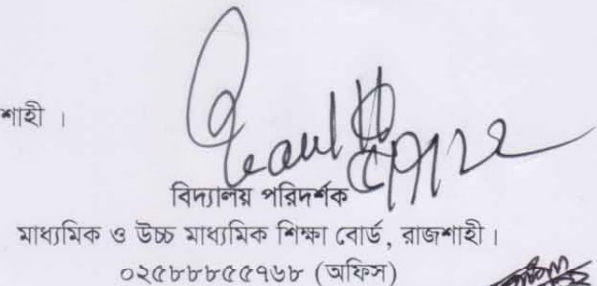 শাহী ।
বিদ্যালয় পরিদর্শক
মাধ্যমিক ও উচ্চ মাধ্যমিক শিক্ষা বোর্ড, রাজশাহী।
০২৫৮৮৮৫৫৭৬৮ (অফিস)